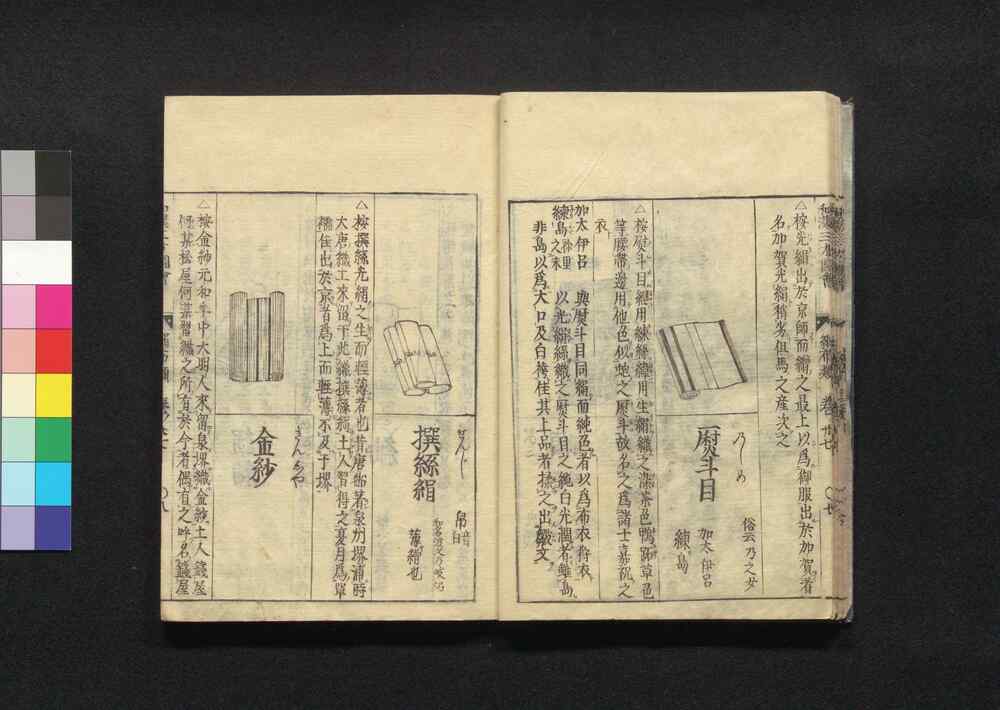 △按光絹出於京師而絹之最上以爲御服出於加賀者
名加賀光絹稍劣但馬之産次之
のしめ
熨斗目
俗云乃之女
加太伊呂
練島
△按熨斗目經用練絲緯用生絹織之染茶色
等腰帶邊用他色似蚫之熨斗故名之爲諸士嘉祝之
衣
加太伊呂 與熨斗目同絹而純色者以爲布衣狩衣
練島 以光絹絲織之熨斗目之純白光潤者
非島以爲大口及白袴佳其上品者撰之出
せんじ
撰絲絹
薄絹也
△按撰絲光絹之生而輕薄者也昔唐船著泉州堺浦時
大唐織工來留于此絲撰土人習得之夏月爲單
襦佳出於京者爲上而輕薄不及于堺
きんしや
金紗
△按金紗元和年中大明人來留泉堺織金紗土人錢屋
何某松屋何某習織之所有於今者偶有之呼名錢屋